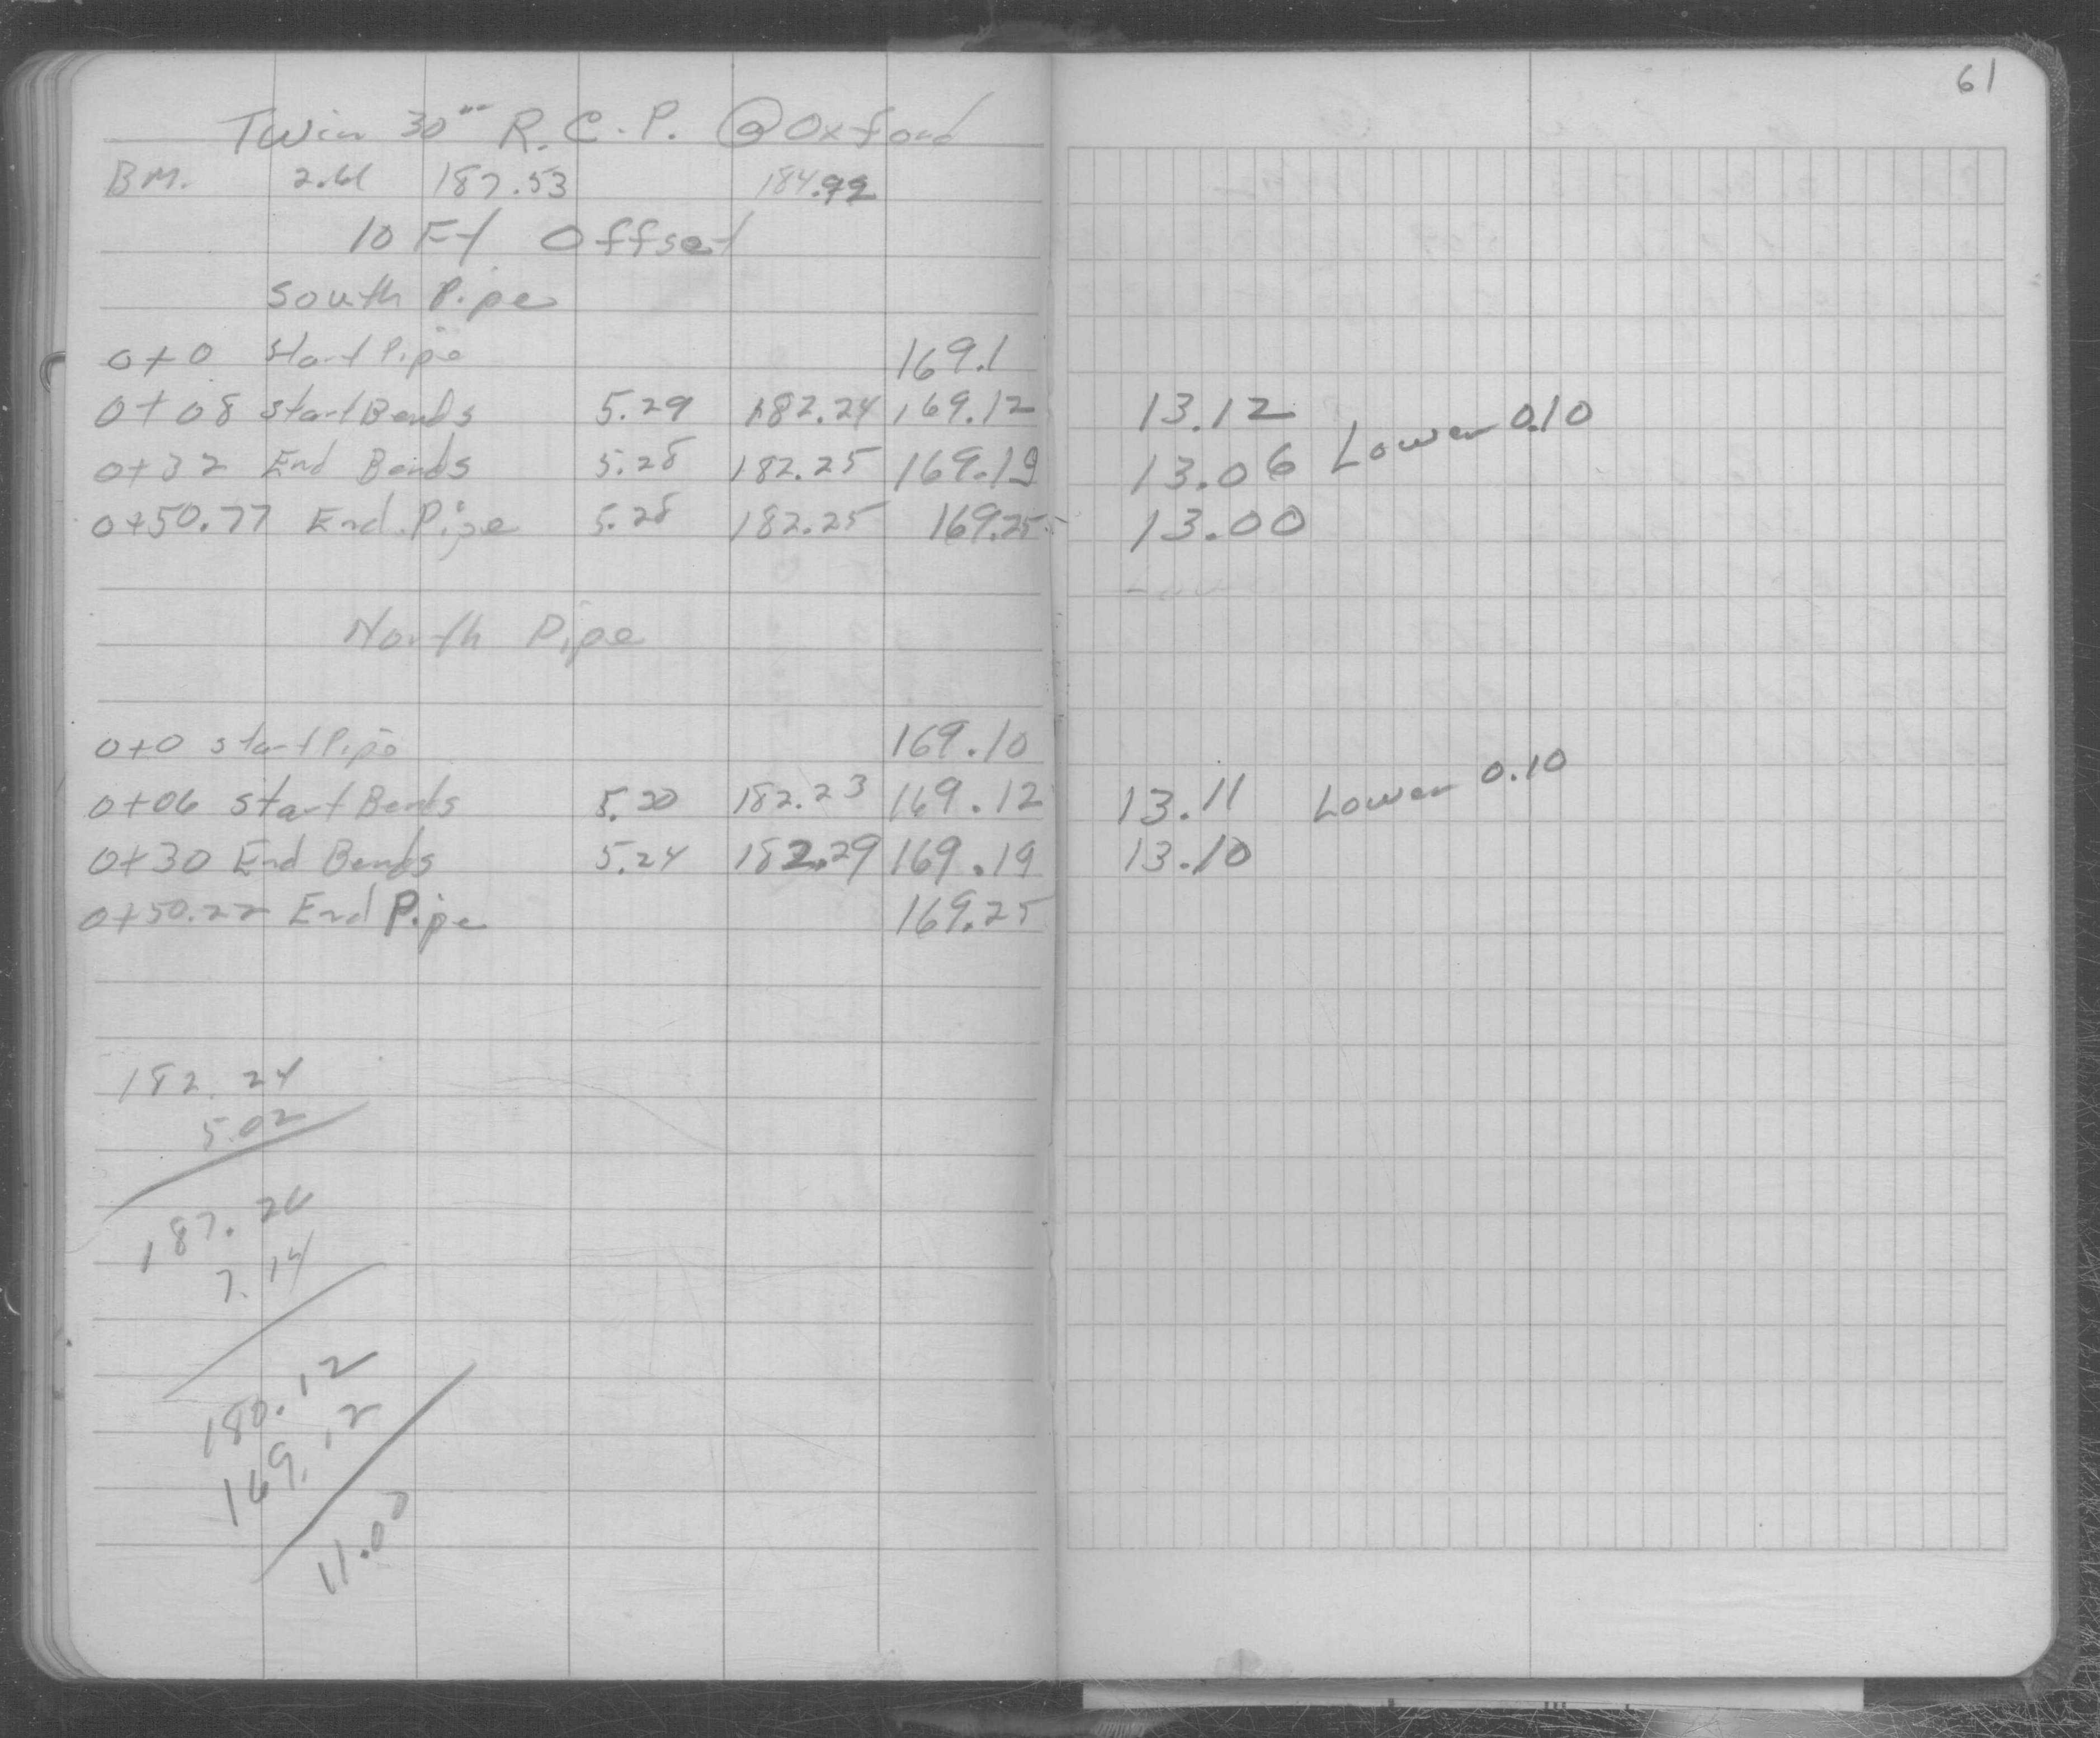 61
Twin 30" R.C.P. @ Oxford
BM. 2.61 187.53 184.92
10 Ft Offset
South Pipe
0+0 Start Pipe 169.1
0+08 Start Bends 5.29 182.24 169.12 13.12 Lower 0.10
0+32 End Bends 5.28 182.25 169.19 13.06
0+50.77 End Pipe 5.28 182.25 169.25 13.00
North Pipe
0+0 Start Pipe 169.10
0+06 Start Bends 5.30 182.23 169.12 13.11 Lower 0.10
0+30 End Bends 5.24 182.29 169.19 13.10
0+50.22 End Pipe 169.25
182.24
5.02
187.26
7.14
180.12
169.12
11.00